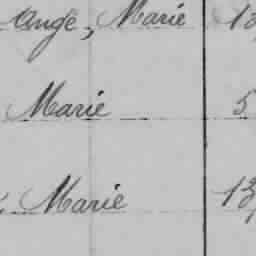 Ange, Marie 13
Marie 5
Marie 13